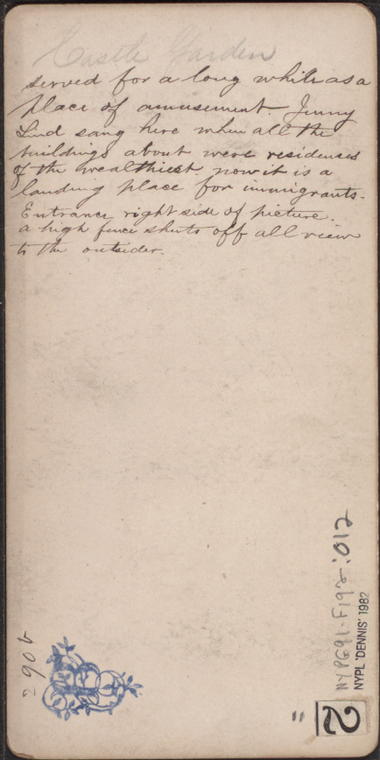 Castle Garden
served for a long while as a
place of amusement. Jenny
Lind sang here when all the
buildings about were residences
of the wealthiest, now it is a
landing place for immigrants.
Entrance right side of picture.
a high fence shuts off all view
to the outsider.
NYPG91-F192:012
NYPL 'DENNIS' 1982
2
"